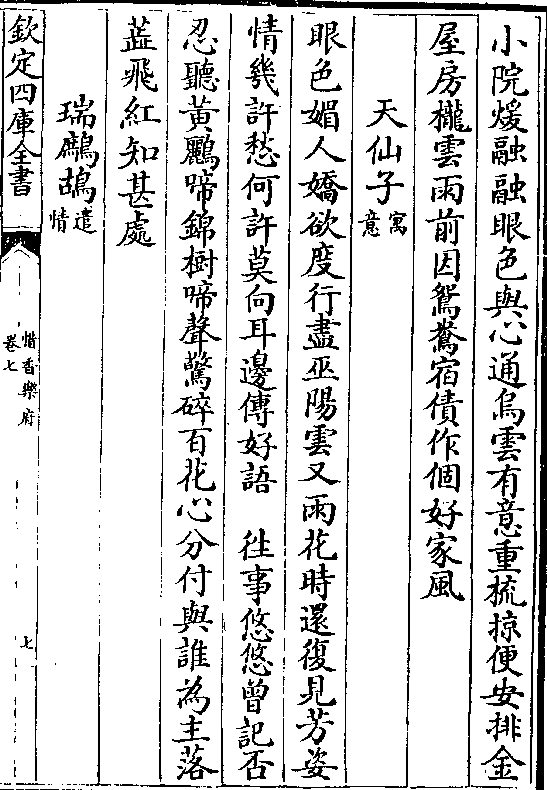 小院煖融融眼色與心通烏雲有意重梳掠便安排金
屋房櫳雲雨前因鴛鴦宿債作個好家風
天仙子寓意
眼色媚人嬌欲度行盡巫陽雲又雨花時還復見芳姿
情幾許愁何許莫向耳邊傳好語　徃事悠悠曾記否
忍聽黃鸝啼錦樹啼聲驚碎百花心分付與誰為主落
蘂飛紅知甚處
瑞鷓鴣遣情
欽定四庫全書
惜香樂府
卷七
七